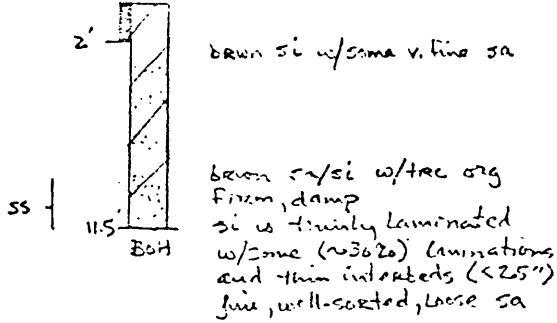 2'
brwn si w/some v. fine sa
brwn sa/si w/trc org
firm, damp
SS
si is thinly laminated
11.5'
BOH
w/some (~30%) laminations
and thin interbeds (<2.5")
fine, well-sorted, loose sa